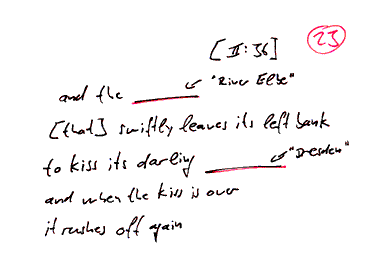 [II:36] 23
"River Elbe"
and the ______
[that] swiftly leaves its left bank
to kiss its darling ______ "Dresden"
and when the kiss is over
it rushes off again